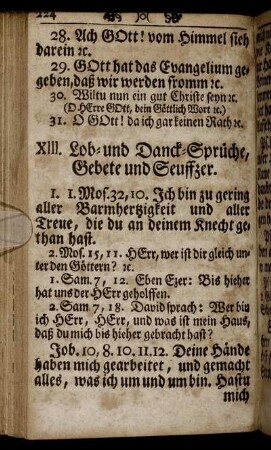 224 )o(
28. Ach GOtt! vom Himmel sieh
darein ꝛc.
29. GOtt hat das Evangelium ge-
geben, daß wir werden fromm ꝛc.
30. Wiltu nun ein gut Christe seyn ꝛc.
(O HErre GOtt, dein Göttlich Wort ꝛc.)
31. O GOtt! da ich gar keinen Rath ꝛc.
XIII. Lob- und Danck-Sprüche,
Gebete und Seuffzer.
1. 1. Mos. 32, 10. Ich bin zu gering
aller Barmhertzigkeit und aller
Treue, die du an deinem Knecht ge-
than hast.
2. Mos. 15, 11. HErr, wer ist dir gleich un-
ter den Göttern? ꝛc.
1. Sam. 7, 12. Eben Ezer: Bis hieher
hat uns der HErr geholffen.
2. Sam. 7, 18. David sprach: Wer bin
ich HErr, HErr, und was ist mein Haus,
daß du mich bis hieher gebracht hast?
Job. 10, 8. 10. 11. 12. Deine Hände
haben mich gearbeitet, und gemacht
alles, was ich um und um bin. Hastu
mich